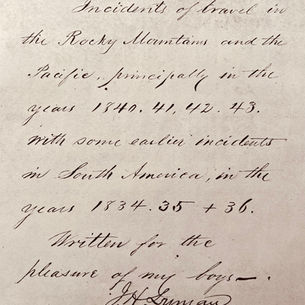 Incidents of travel in
the Rocky Mountains and the
Pacific, principally in the
years 1840. 41, 42. 43.
with some earlier incidents
in South America, in the
years 1834. 35 + 36.
Written for the
pleasure of my boys—.
J.H.